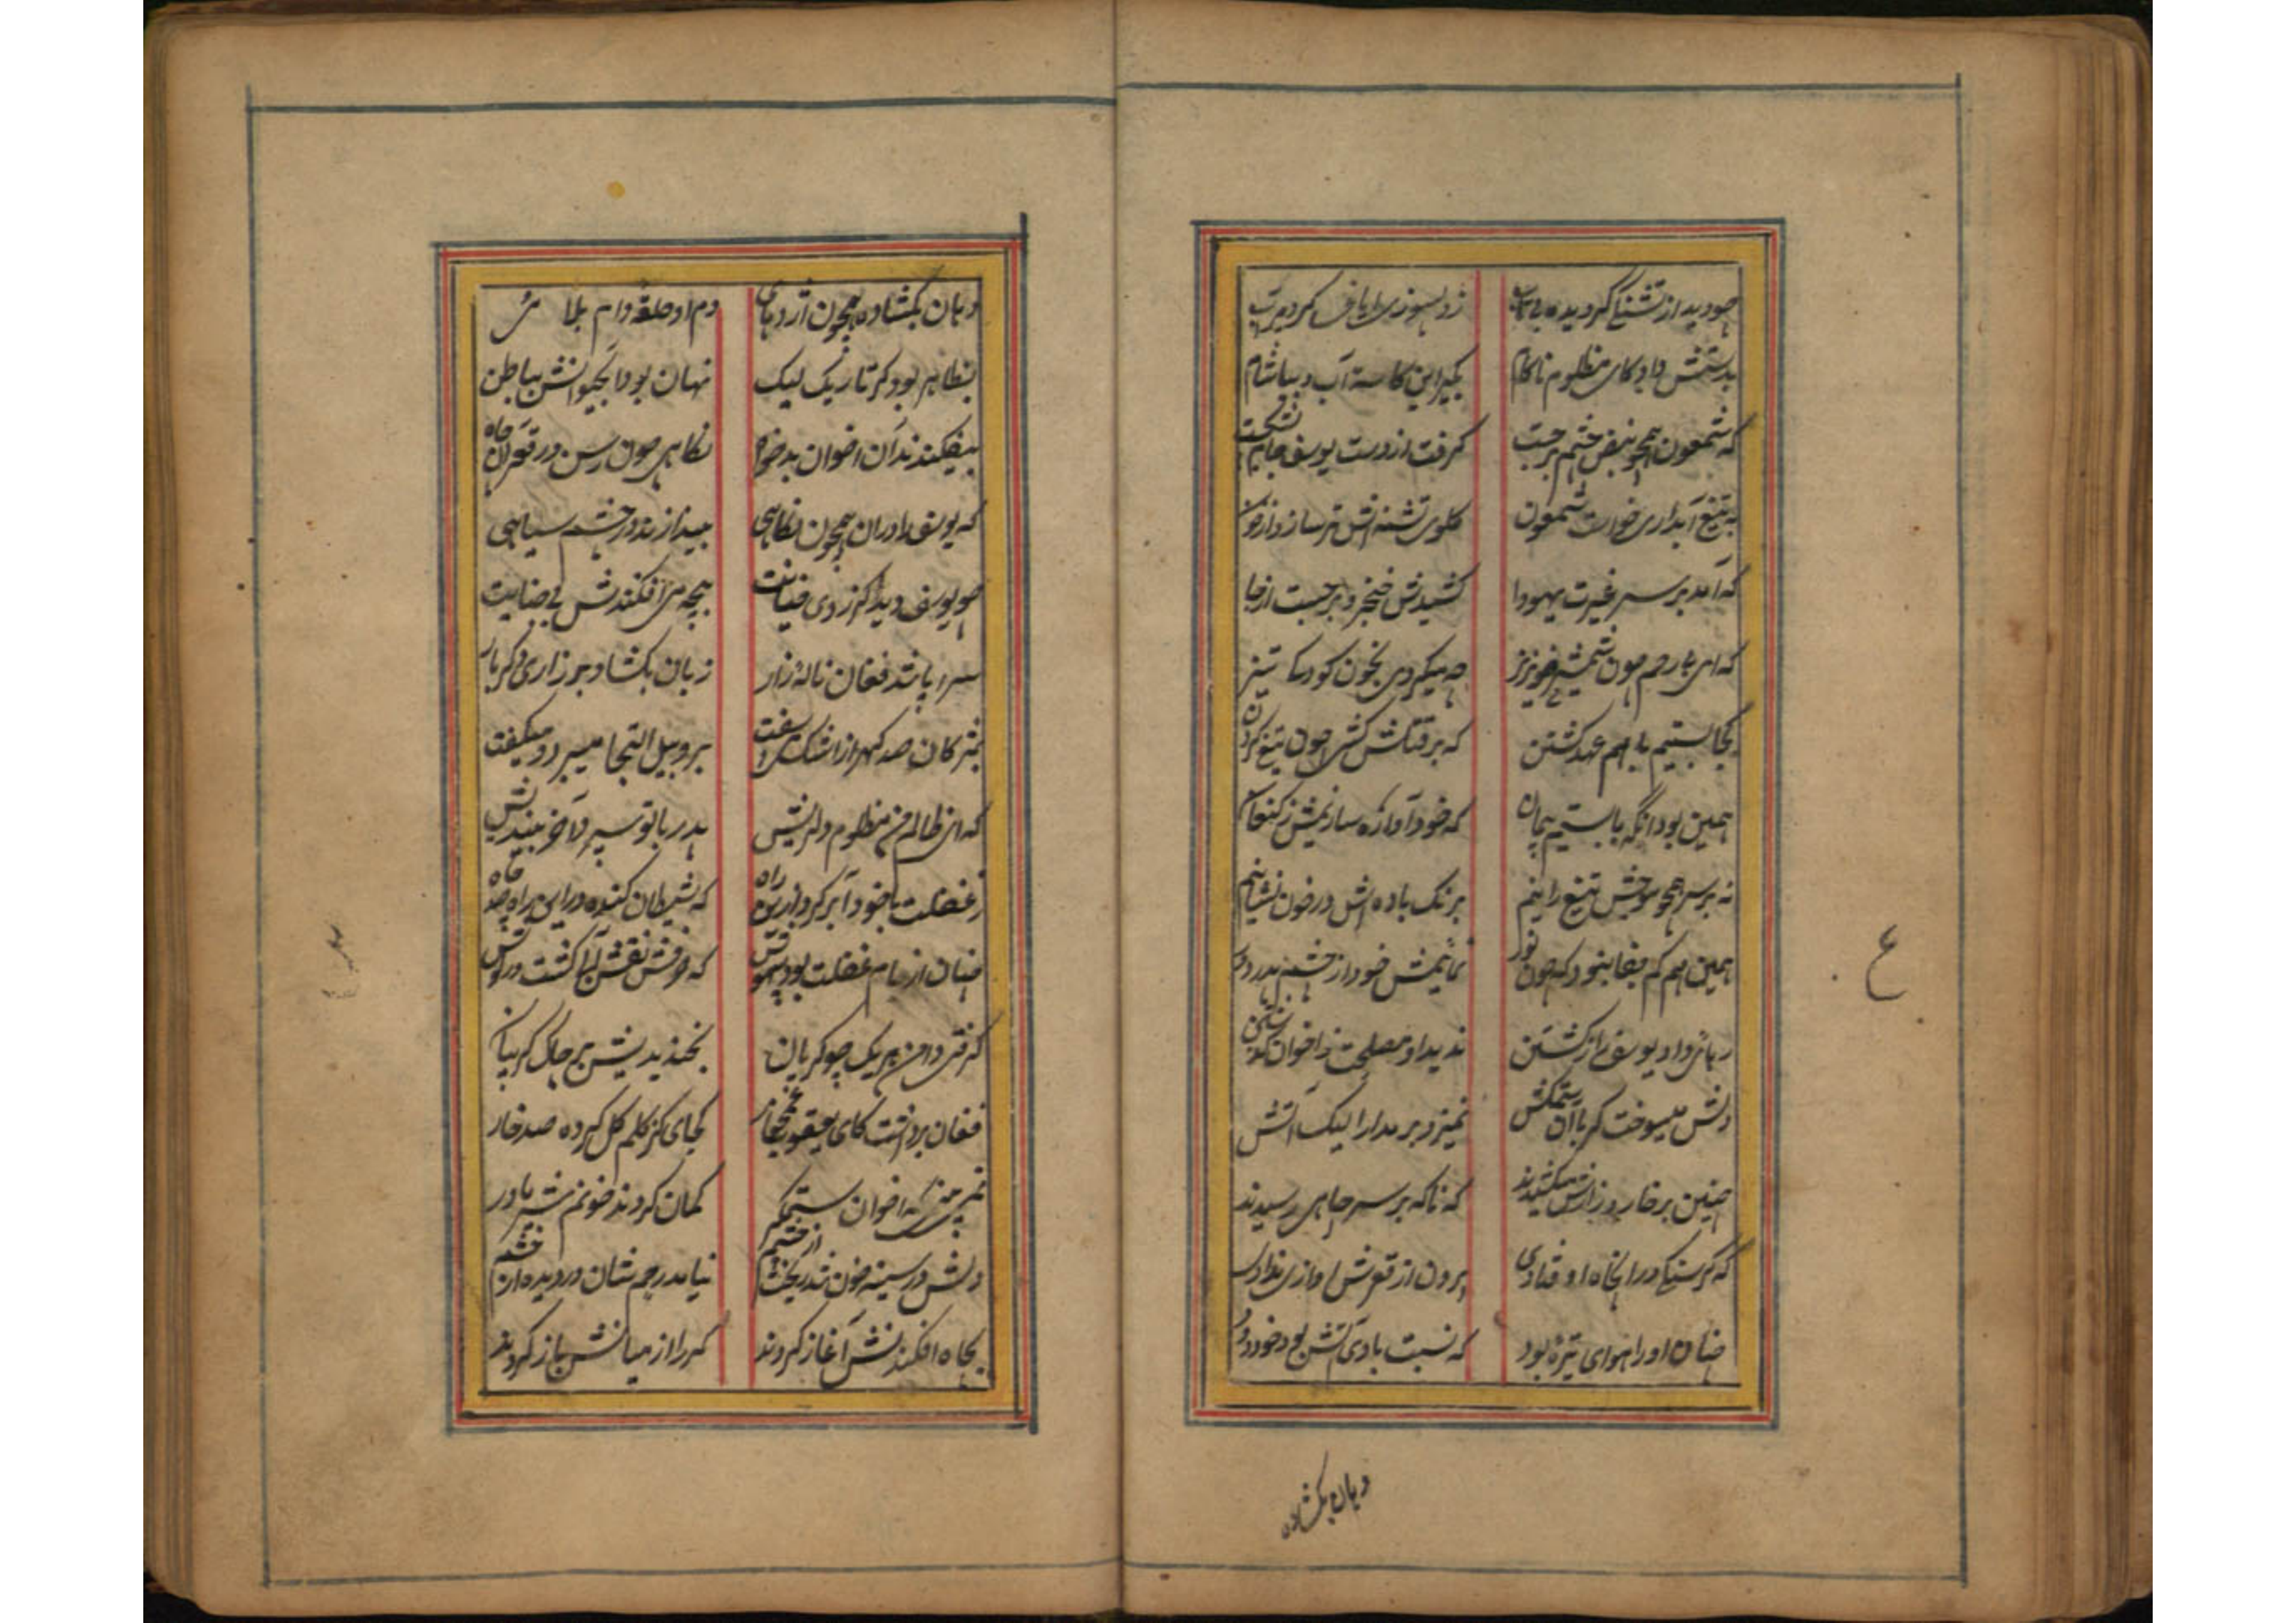 چو دید از تشنگی گردیده بی تاب
ز دلسوزی ایاغی کرد پر آب
بدستش داد کای مظلوم ناکام
بگیر این کاسهٔ آب و بیاشام
که شمعون همچو نبض خشم برجست
گرفت از دست یوسف جام بشکست
به تیغ آبداری خواست شمعون
گلوی تشنه‌اش تر سازد از خون
که آمد بر سر غیرت یهودا
کشیدش خنجر و برجست از جا
که ای بی رحم چون شمشیر خونریز
چه میکردی بخون کودکی تیز
کجا بستیم با هم عهد کشتن
که بر قتلش کشی چون تیغ گردن
همین بود آنکه ما بستیم پیمان
که خود آواره سازیمش ز کنعان
نه بر سر همچو شمعش تیغ رانیم
برنگ باده‌اش در خون نشانیم
همین هم کم جفا نبود که چون نور
نمائیمش خود از چشم پدر دور
رهائی داد یوسف را ز کشتن
ندید او مصلحت ز اخوان
دلش میسوخت گر با آن ستمکش
نمیزد بر مدارا لیک آتش
چنین بر خار و زارش میکشیدند
که ناگه بر سر چاهی رسیدند
که گر سنگی در آنجا او فتادی
برون از قعرش آوازی ندادی
چنان او را هوای تیره بود
که نسبت با وی آتش بود خود دود
دهان بگشاده
دهان بگشاده همچون اژدهائی
دم او حلقهٔ دام بلائی
بظاهر بود گر تاریک لیکن
نهان بود آب حیوانش بباطن
بیفکندند آن اخوان بدخواه
نگاهی چون رسن در قعر آن چاه
که یوسف را در آن همچون نگاهی
بیندازند در چشم سیاهی
چو یوسف دید کز روی خیانت
بچه می افکندنش بی جنایت
سر و پا شد فغان نالهٔ زار
زبان بگشاد بر زاری دگر بار
بمژگان صد گهر از اشک میسفت
بروبیل التجا میبرد و میگفت
که ای ظالم من مظلوم دلریش
پدر با تو سپرد آخر بیندیش
ز غفلت با خود آ برگرد ازین راه
که شیطان کنده در این راه صد چاه
چنان از جام غفلت بود بیهوش
که حرفش نقش آب گشت در گوش
گرفتی دامن هر یک چو گریان
بخندیدیش بر چاک گریبان
فغان برداشت کای یعقوب غمخوار
کجائی کز گلم گل کرده صد خار
نمی بینی که اخوان ستمگر
گمان کردند خونم شیر مادر
دلش در سینه خون شد ریخت از چشم
نیامد رحم شان در دیده از خشم
بچاه افکندنش آغاز کردند
کمر را از میانش باز کردند